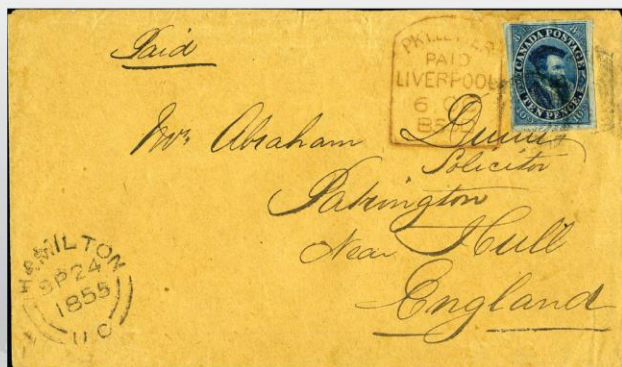 Paid
PKT. LETTER
PAID
LIVERPOOL
6 OC
CANADA POSTAGE
TEN PENCE
Mr Abraham
Solicitor
Patrington
Near Hull
England
HAMILTON
SP 24
1855
U.C